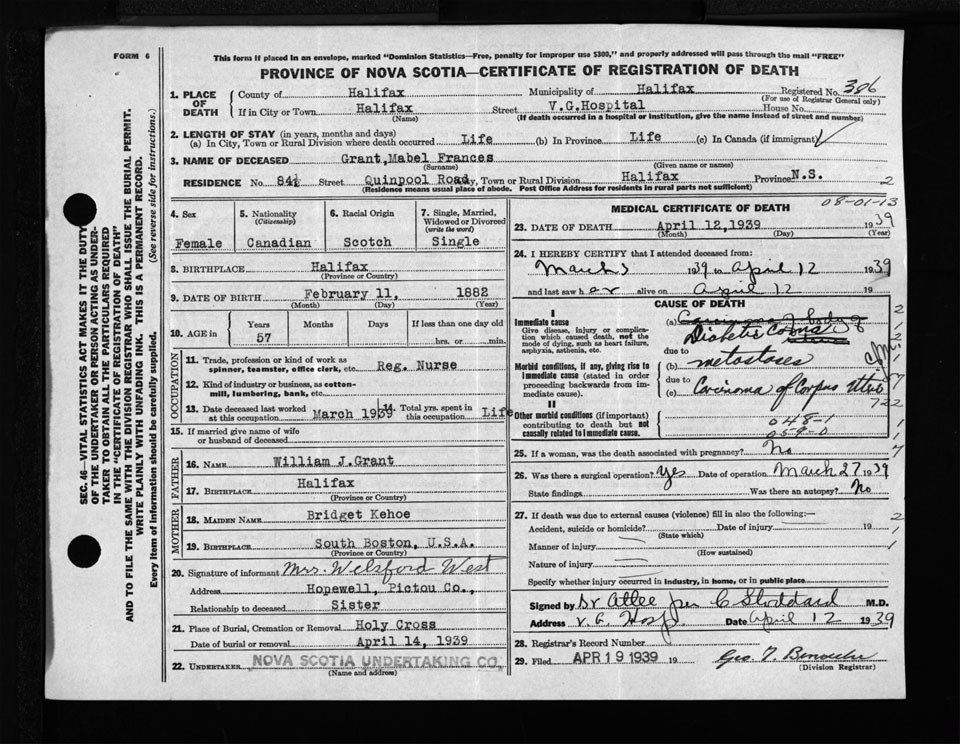 FORM 6
This form if placed in an envelope, marked "Dominion Statistics—Free, penalty for improper use $300," and properly addressed will pass through the mail "FREE"
PROVINCE OF NOVA SCOTIA—CERTIFICATE OF REGISTRATION OF DEATH
1. PLACE OF DEATH
County of Halifax Municipality of Halifax Registered No. 306
(For use of Registrar General only)
If in City or Town Halifax Street V.G.Hospital House No.
(Name) (If death occurred in a hospital or institution, give the name instead of street and number)
2. LENGTH OF STAY (in years, months and days)
(a) In City, Town or Rural Division where death occurred Life (b) In Province Life (c) In Canada (if immigrant)
3. NAME OF DECEASED Grant,Mabel Frances
(Surname) (Given name or names)
RESIDENCE No. 84½ Street Quinpool Road City, Town or Rural Division Halifax Province N.S.
(Residence means usual place of abode. Post Office Address for residents in rural parts not sufficient)
2
08-01-13
SEC. 46—VITAL STATISTICS ACT MAKES IT THE DUTY
OF THE UNDERTAKER OR PERSON ACTING AS UNDER-
TAKER TO OBTAIN ALL THE PARTICULARS REQUIRED
IN THE "CERTIFICATE OF REGISTRATION OF DEATH"
AND TO FILE THE SAME WITH THE DIVISION REGISTRAR WHO SHALL ISSUE THE BURIAL PERMIT.
WRITE PLAINLY WITH UNFADING INK. THIS IS A PERMANENT RECORD.
Every item of information should be carefully supplied. (See reverse side for instructions.)
4. Sex
Female
5. Nationality
(Citizenship)
Canadian
6. Racial Origin
Scotch
7. Single, Married,
Widowed or Divorced
(write the word)
Single
8. BIRTHPLACE Halifax
(Province or Country)
9. DATE OF BIRTH February 11, 1882
(Month) (Day) (Year)
10. AGE in
Years Months Days If less than one day old
57 hrs. or min.
OCCUPATION
11. Trade, profession or kind of work as
spinner, teamster, office clerk, etc. Reg. Nurse
12. Kind of industry or business, as cotton-
mill, lumbering, bank, etc.
13. Date deceased last worked
at this occupation March 1939
14. Total yrs. spent
in this occupation Life
15. If married give name of wife
or husband of deceased
FATHER
16. NAME William J.Grant
17. BIRTHPLACE Halifax
(Province or Country)
MOTHER
18. MAIDEN NAME Bridget Kehoe
19. BIRTHPLACE South Boston, U.S.A.
(Province or Country)
20. Signature of informant Mrs. Welsford West
Address Hopewell, Pictou Co.,
Relationship to deceased Sister
21. Place of Burial, Cremation or Removal Holy Cross
Date of burial or removal April 14, 1939
22. UNDERTAKER NOVA SCOTIA UNDERTAKING CO.
(Name and address)
MEDICAL CERTIFICATE OF DEATH
23. DATE OF DEATH April 12,1939 1939
(Month) (Day) (Year)
24. I HEREBY CERTIFY that I attended deceased from:
March 3 1939 to April 12 1939
and last saw her alive on April 12 19
CAUSE OF DEATH
I
Immediate cause
Give disease, injury or complica-
tion which caused death, not the
mode of dying, such as heart failure,
asphyxia, asthenia, etc.
(a) Carcinoma of body of
Diabetic Coma
due to
(b) metastases
Morbid conditions, if any, giving rise to
immediate cause (stated in order
proceeding backwards from im-
mediate cause).
due to
(c) Carcinoma of Corpus Uteri
II
Other morbid conditions (if important)
contributing to death but not
causally related to immediate cause.
048-1
059-0
722
25. If a woman, was the death associated with pregnancy? No
26. Was there a surgical operation? Yes Date of operation March 27 1939
State findings Was there an autopsy? No
27. If death was due to external causes (violence) fill in also the following:—
Accident, suicide or homicide? Date of injury 19
(State which)
Manner of injury
(How sustained)
Nature of injury
Specify whether injury occurred in industry, in home, or in public place
Signed by Dr Atlee per C Stoddard M.D.
Address V.G. Hosp. Date April 12 1939
28. Registrar's Record Number
29. Filed APR 19 1939 19
(Division Registrar)